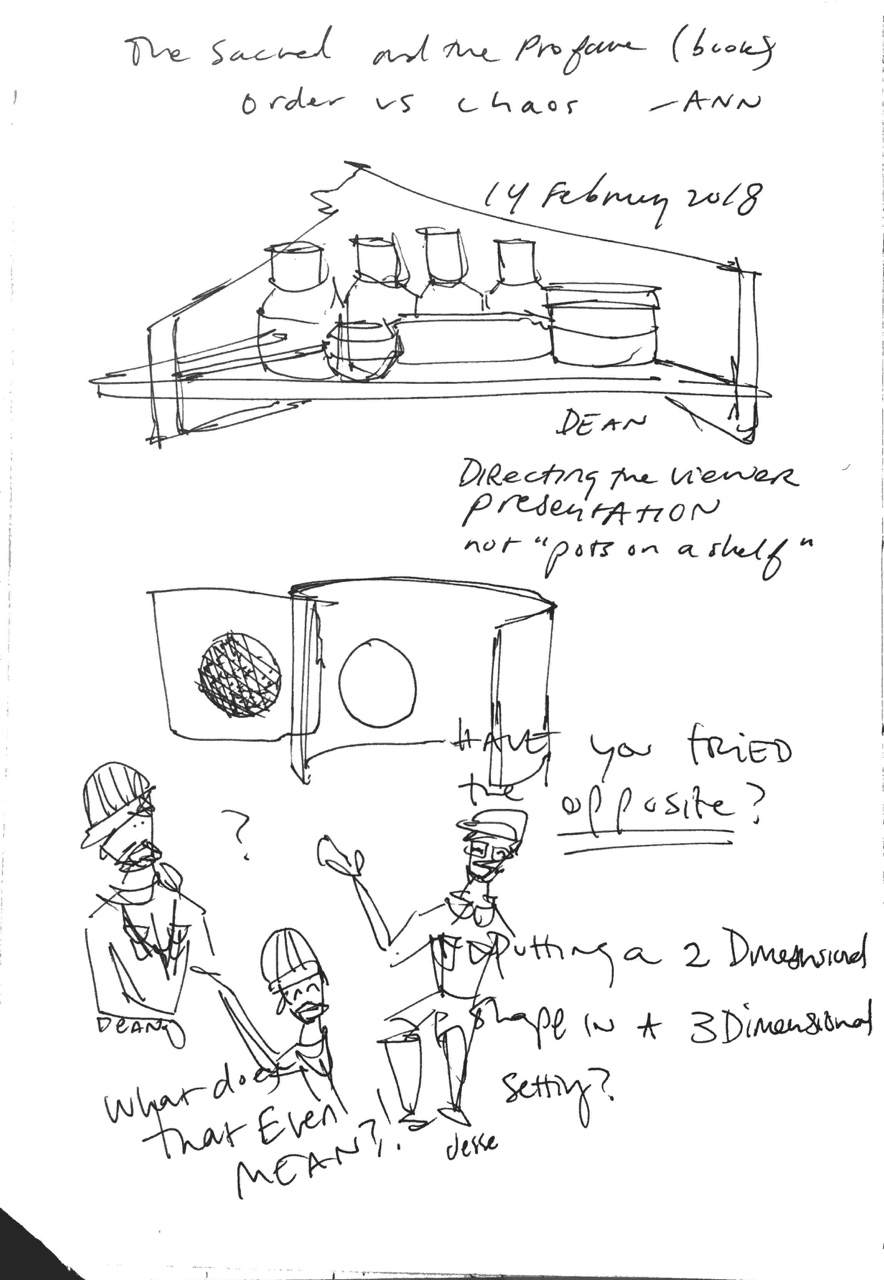 The Sacred and the Profane (book)
order vs chaos - ANN
14 February 2018
DEAN
Directing the viewer
Presentation
not "pots on a shelf"
HAVE you tried
the opposite?
?
Putting a 2 Dimensional
shape in a 3 Dimensional
setting?
DEAN
What does
that Even
MEAN?!
Jesse